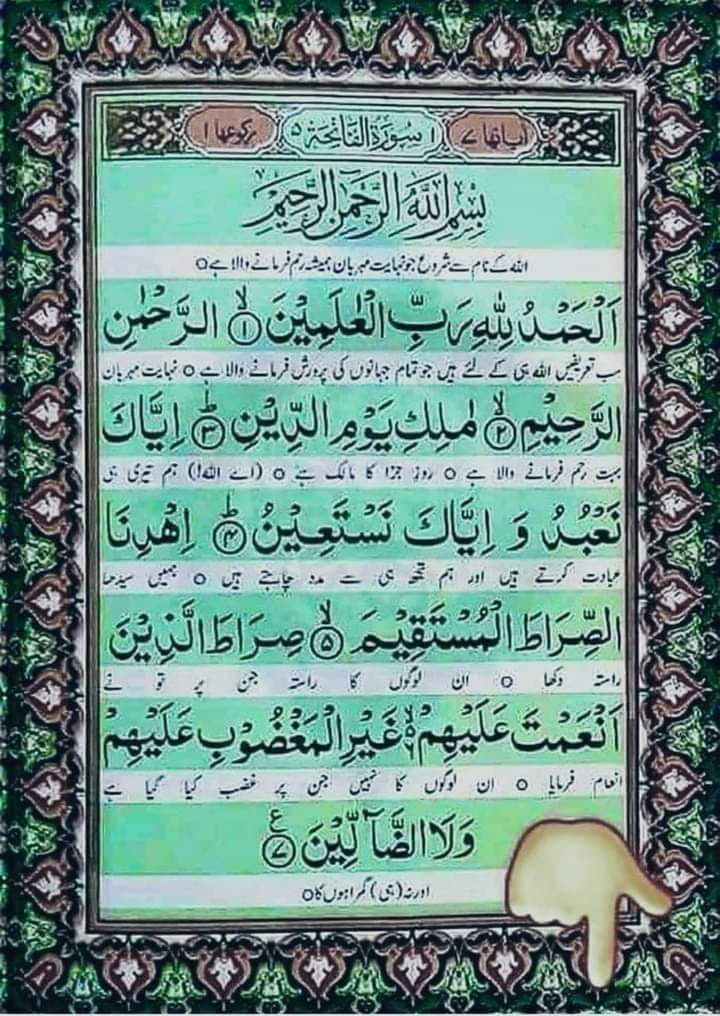 اٰیاتہا ۷ ۱ سُوْرَةُ الْفَاتِحَةِ ۵ رکوعہا ۱
بِسْمِ اللّٰهِ الرَّحْمٰنِ الرَّحِیْمِ
اللہ کے نام سے شروع جو نہایت مہربان ہمیشہ رحم فرمانے والا ہے ○
اَلْحَمْدُ لِلّٰهِ رَبِّ الْعٰلَمِیْنَ ۙ﴿۱﴾ الرَّحْمٰنِ
سب تعریفیں اللہ ہی کے لئے ہیں جو تمام جہانوں کی پرورش فرمانے والا ہے ○ نہایت مہربان
الرَّحِیْمِ ۙ﴿۲﴾ مٰلِكِ یَوْمِ الدِّیْنِ ؕ﴿۳﴾ اِیَّاكَ
بہت رحم فرمانے والا ہے ○ روزِ جزا کا مالک ہے ○ (اے اللہ!) ہم تیری ہی
نَعْبُدُ وَ اِیَّاكَ نَسْتَعِیْنُ ؕ﴿۴﴾ اِهْدِنَا
عبادت کرتے ہیں اور ہم تجھ ہی سے مدد چاہتے ہیں ○ ہمیں سیدھا
الصِّرَاطَ الْمُسْتَقِیْمَ ۙ﴿۵﴾ صِرَاطَ الَّذِیْنَ
راستہ دکھا ○ ان لوگوں کا راستہ جن پر تو نے
اَنْعَمْتَ عَلَیْهِمْ ۙ۬۶ غَیْرِ الْمَغْضُوْبِ عَلَیْهِمْ
انعام فرمایا ○ ان لوگوں کا نہیں جن پر غضب کیا گیا ہے
وَلَا الضَّآلِّیْنَ ﴿۷﴾ ع
اور نہ (ہی) گمراہوں کا ○